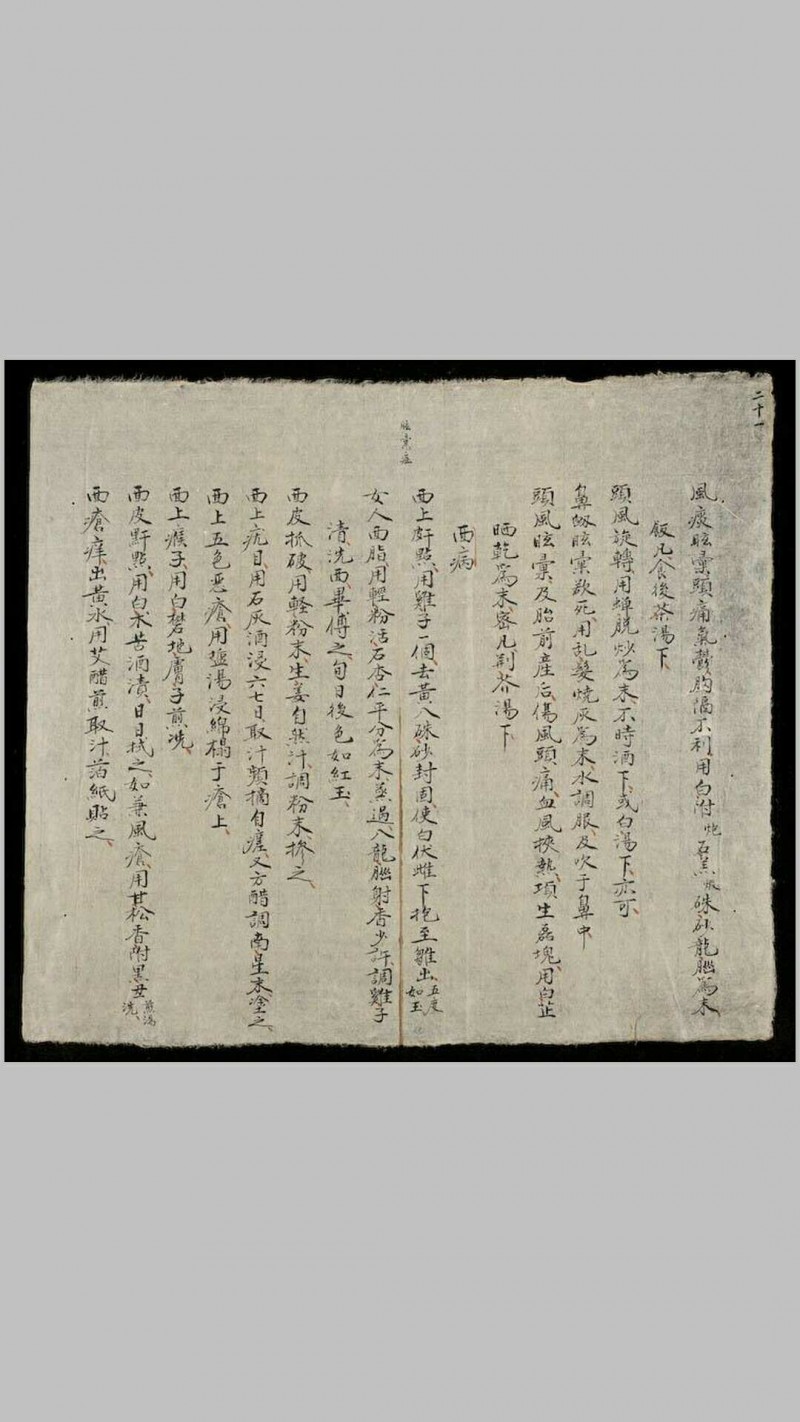 二十一
風痰眩暈頭痛氣鬱胸膈不利用白附炮石羔煅硃砂龍腦為末
飯凡食後茶湯下
頭風旋轉用蟬脫炒為末不時酒下或白湯下亦可
鼻衂眩暈欲死用乱髮燒灰為末水調服及吹于鼻中
頭風眩暈及胎前産后傷風頭痛血風挾熱項生磊塊用白芷
晒乾為末密凡荆芥湯下
面病
眩暈
面上皯㸃用雞子一個去黃入硃砂封固使白伏雌下抱至雛出五度如玉
女人面脂用輕粉活石杏仁平分為末蒸過入龍腦射香少許調雞子
清洗面畢傅之旬日後色如紅玉
面皮抓破用軽粉末生姜自然汁調粉末摻之
面上疣目用石灰酒浸六七日取汁頻摘自瘥又方醋調南星末塗之
面上五色惡瘡用塩湯浸綿榻于瘡上
面上瘊子用白礬地膚子煎洗
面皮䵟㸃用白朮苦酒漬日日拭之如兼風瘡用甘松香附黑丑煎湯洗
面瘡痒出黃水用艾醋煎取汁萡紙貼之